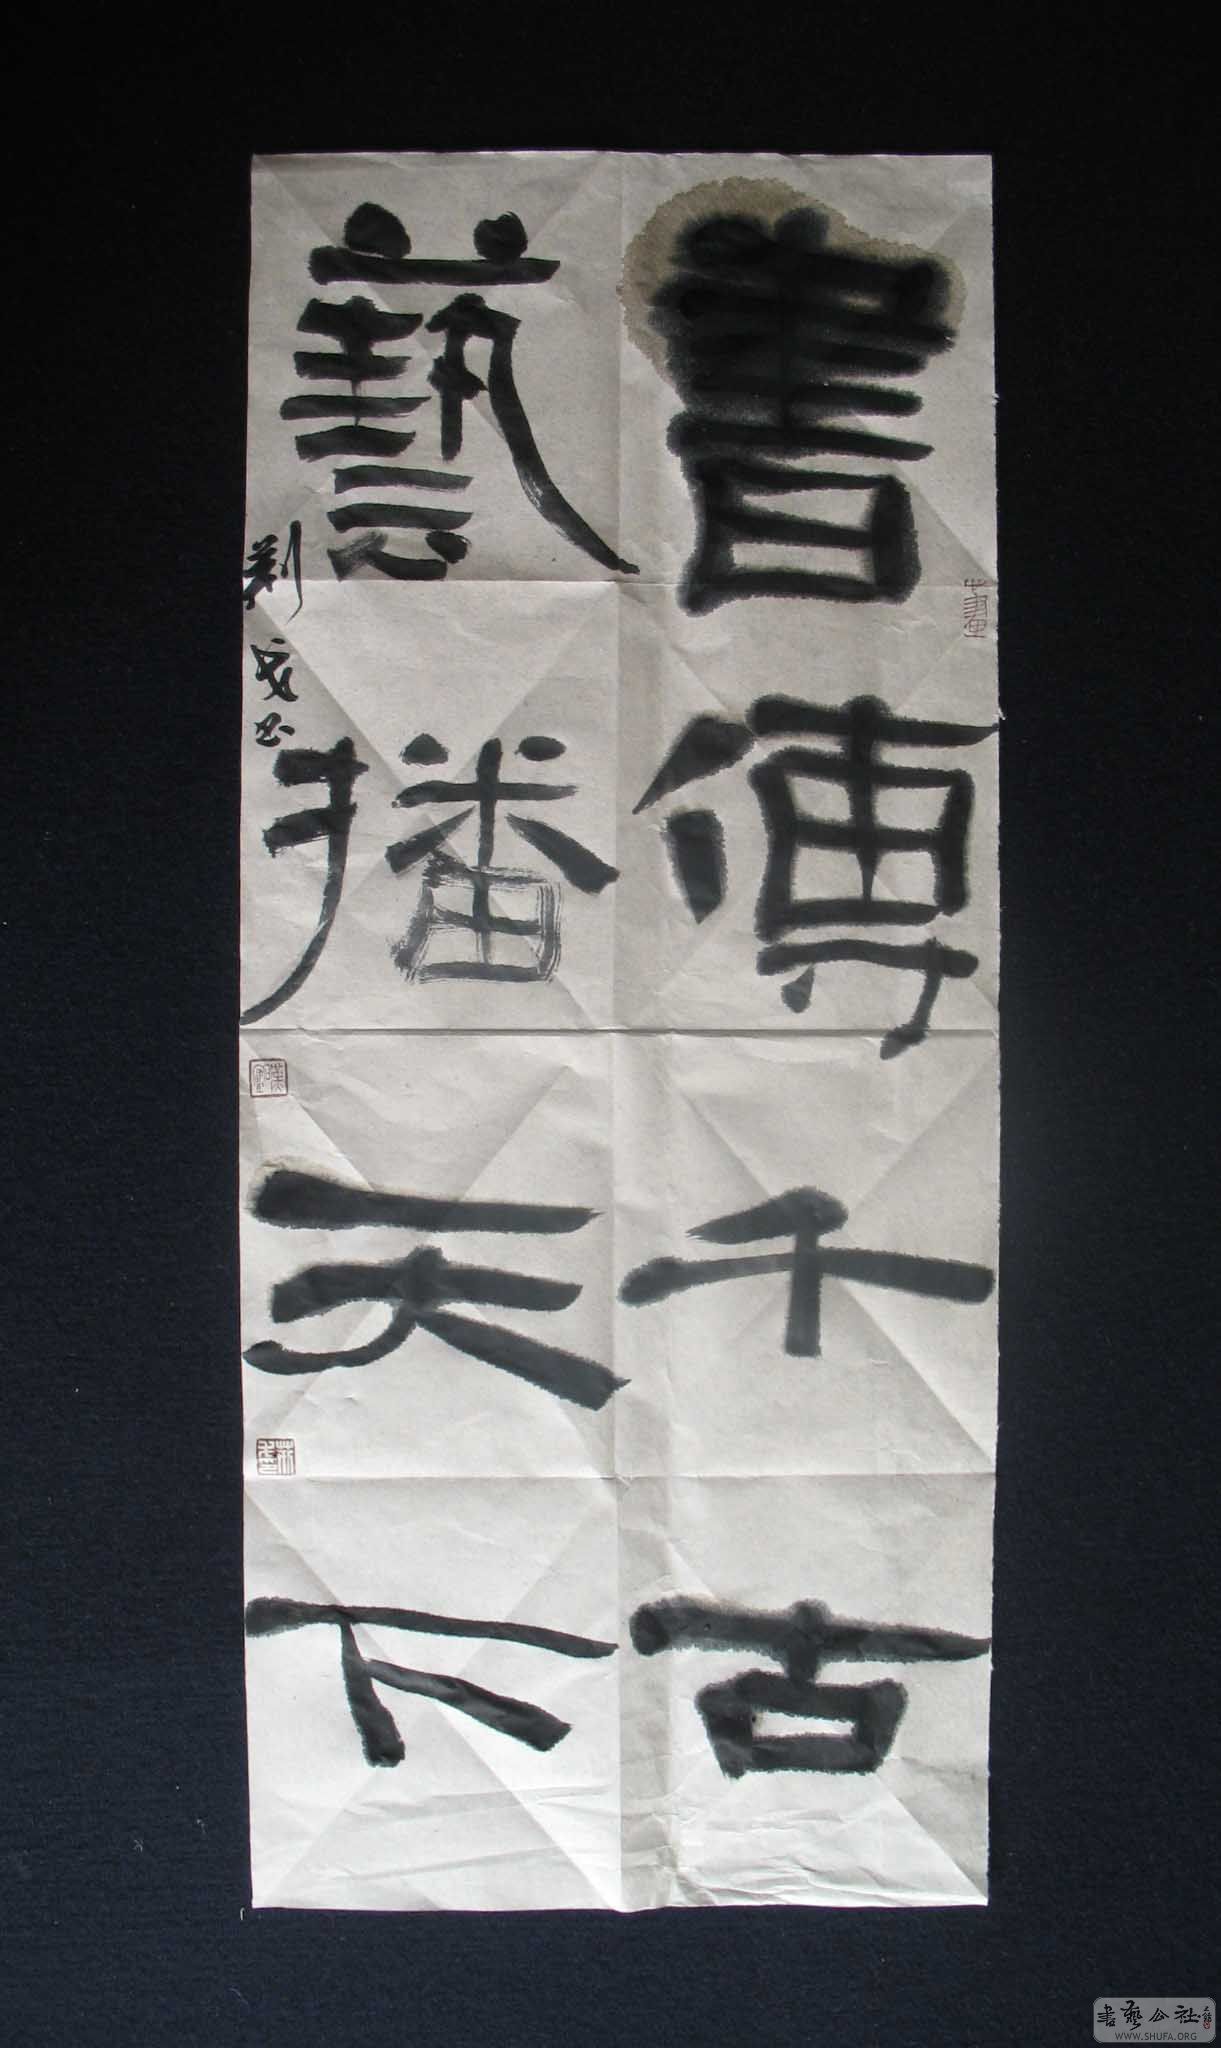 書傳千古
藝播天下
書藝公社
WWW.SHUFA.ORG